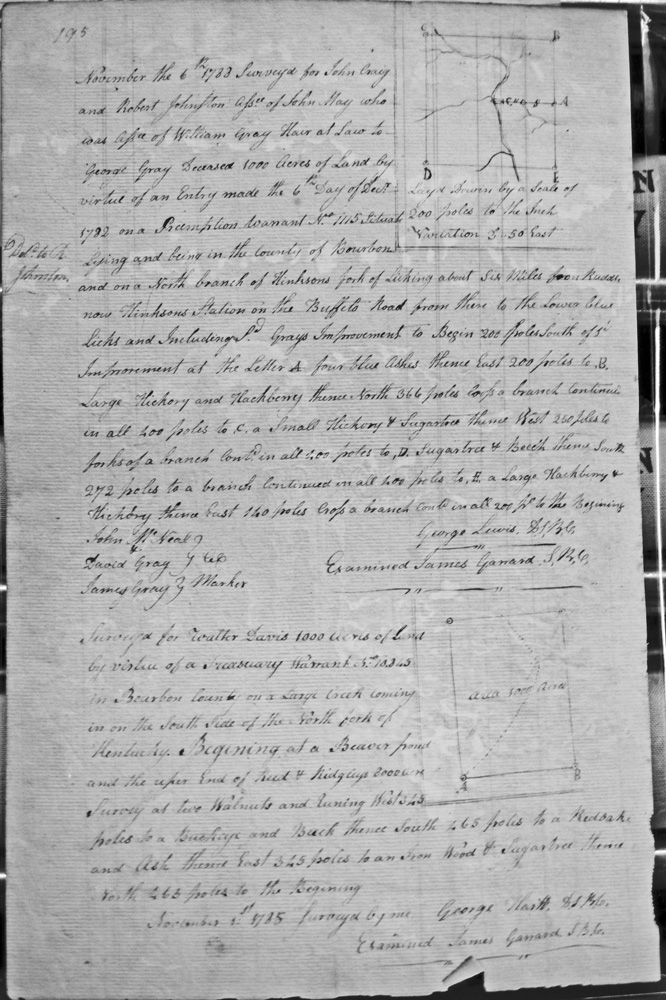 195
November the 6th 1788 Surveyd for John Craig
and Robert Johnston Assee of John May who
was Assee of William Gray Hair at Law to
George Gray Deceased 1000 Acres of Land by
virtue of an Entry made the 6th Day of Decr
1782 on a Preemption Warrant No 1115 Situate
Lying and being in the County of Bourbon
and on a North branch of Hinksons fork of Licking about Six Miles from Rudds
now Hinksons Station on the Buffelo Road from there to the Lower blue
Licks and Including Sd Grays Improvement to Begin 200 poles South of Sd
Improvement at the Letter A four blue Ashes thence East 200 poles to B.
Large Hickory and Hackberry thence North 366 poles Cross a branch Continue
in all 400 poles to C. a Small Hickory & Sugartree thence West 260 poles to
forks of a branch Contd in all 400 poles to, D. Sugartree & Beech thence South
272 poles to a branch Continued in all 400 poles to, E. a Large Hackberry &
Hickory thence East 140 poles Cross a branch Contd in all 200 ps to the Begining
John Mc Neal
&
David Gray
James Gray Marker
George Lewis, D.S.B.C.
Examined James Garrard, S.B.C.
Deld to R
Johnston
C
B
A
D
E
Layd Down by a Scale of
200 poles to the Inch
Variation 3-50 East
Surveyd for Walter Davis 1000 Acres of Land
by virtue of a Treasuary Warrant No
in Bourbon County on a Large Creek Coming
in on the South Side of the North fork of
Kentucky. Begining at a Beaver pond
and the uper End of Reed & Ridgleys 2000 acre
Survey at two Walnuts and Runing West 345
poles to a Buckeye and Beech thence South 465 poles to a Redoake
and Ash thence East 345 poles to an Iron Wood & Sugartree thence
North 465 poles to the Begining
November 1st 1785 Surveyd by me George Hartt. D.S.B.C.
Examined James Garrard S.B.C.
Area 1000 Acres